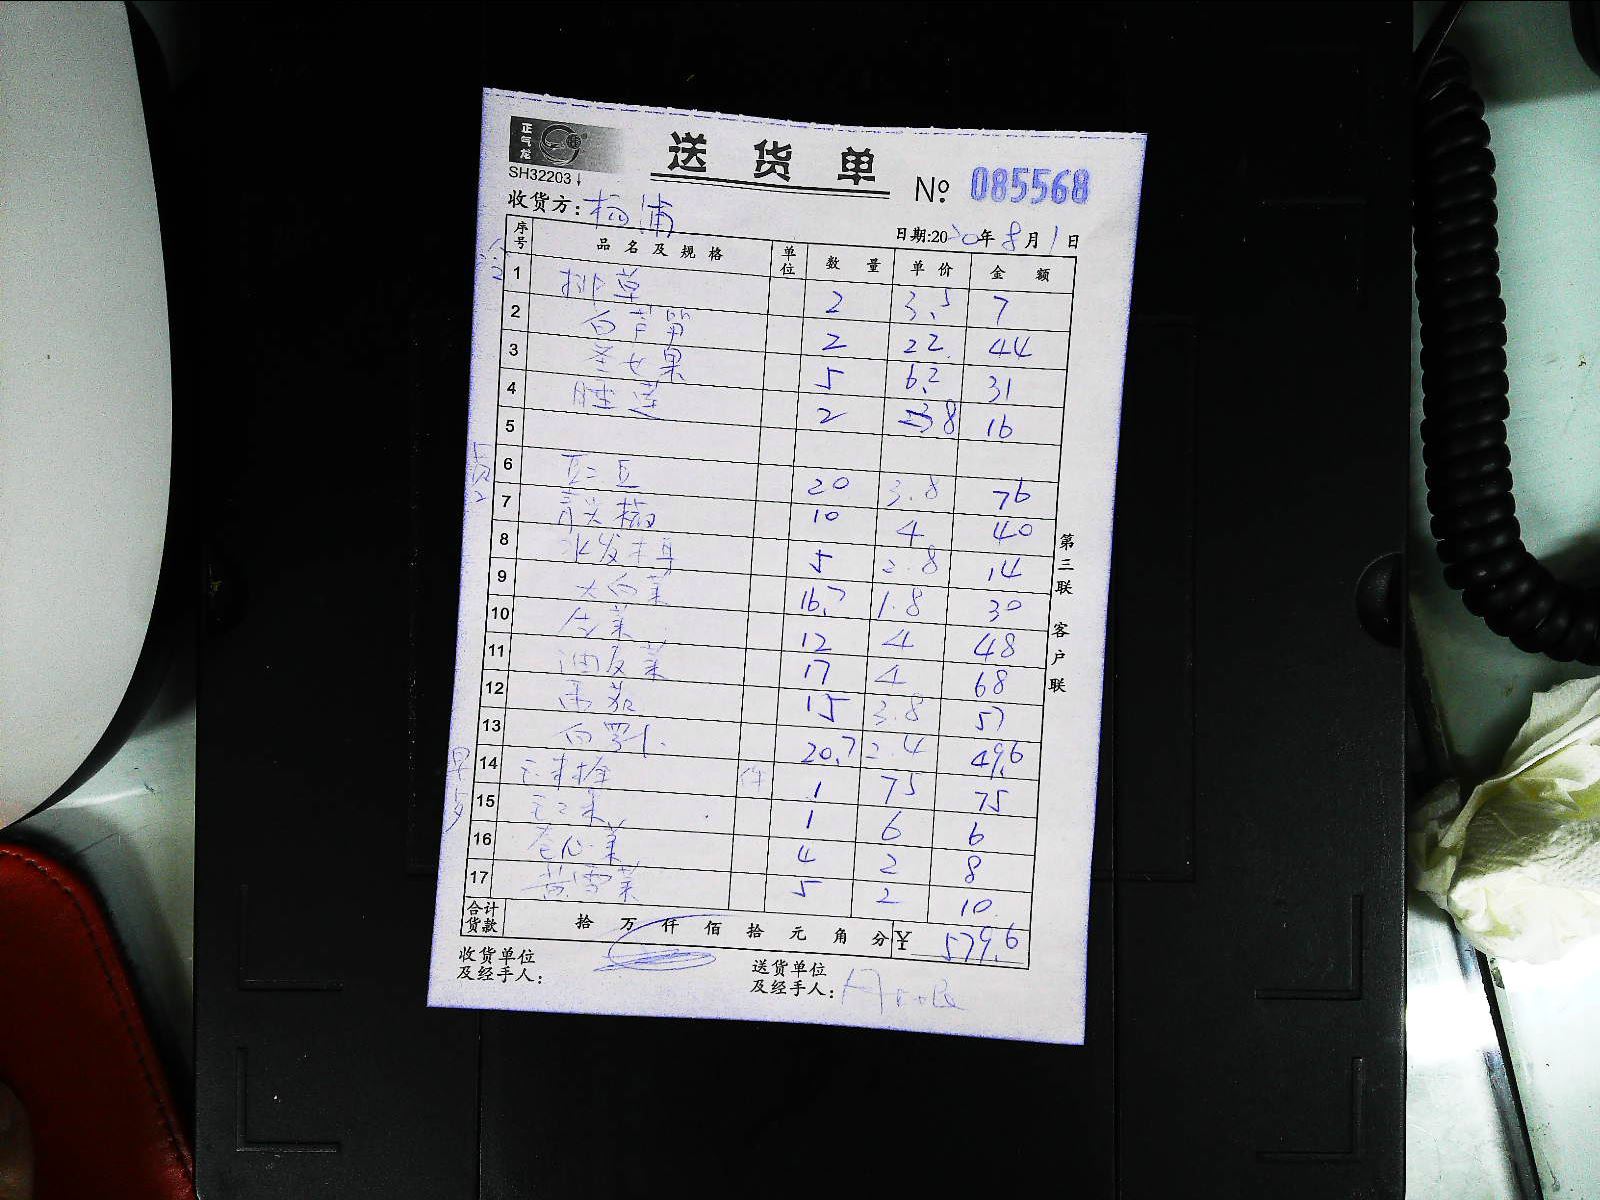 正气龙
SH32203↓
送货单
№ 085568
收货方: 杨浦
日期:2020年8月1日
序号 品名及规格 单位 数量 单价 金额
1 排草 2 3.5 7
2 白芦笋 2 22 44
3 圣女果 5 6.2 31
4 睡莲 2 8 16
5
6 豆 20 3.8 76
7 青尖椒 10 4 40
8 水发木耳 5 2.8 14
9 大白菜 16.7 1.8 30
10 菜 12 4 48
11 油麦菜 17 4 68
12 番茄 15 3.8 57
13 白萝卜 20.7 2.4 49.6
14 玉米 件 1 75 75
15 1 6 6
16 卷心菜 4 2 8
17 菜 5 2 10
合计货款 拾 万 仟 佰 拾 元 角 分 ¥ 579.6
收货单位及经手人:
送货单位及经手人:
第三联 客户联